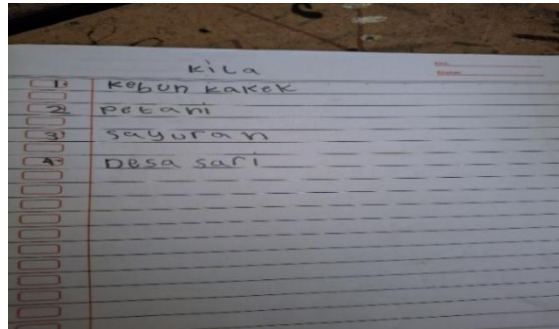 kiLa
1. kebun kakek
2. petani
3. sayuran
4. Desa sari